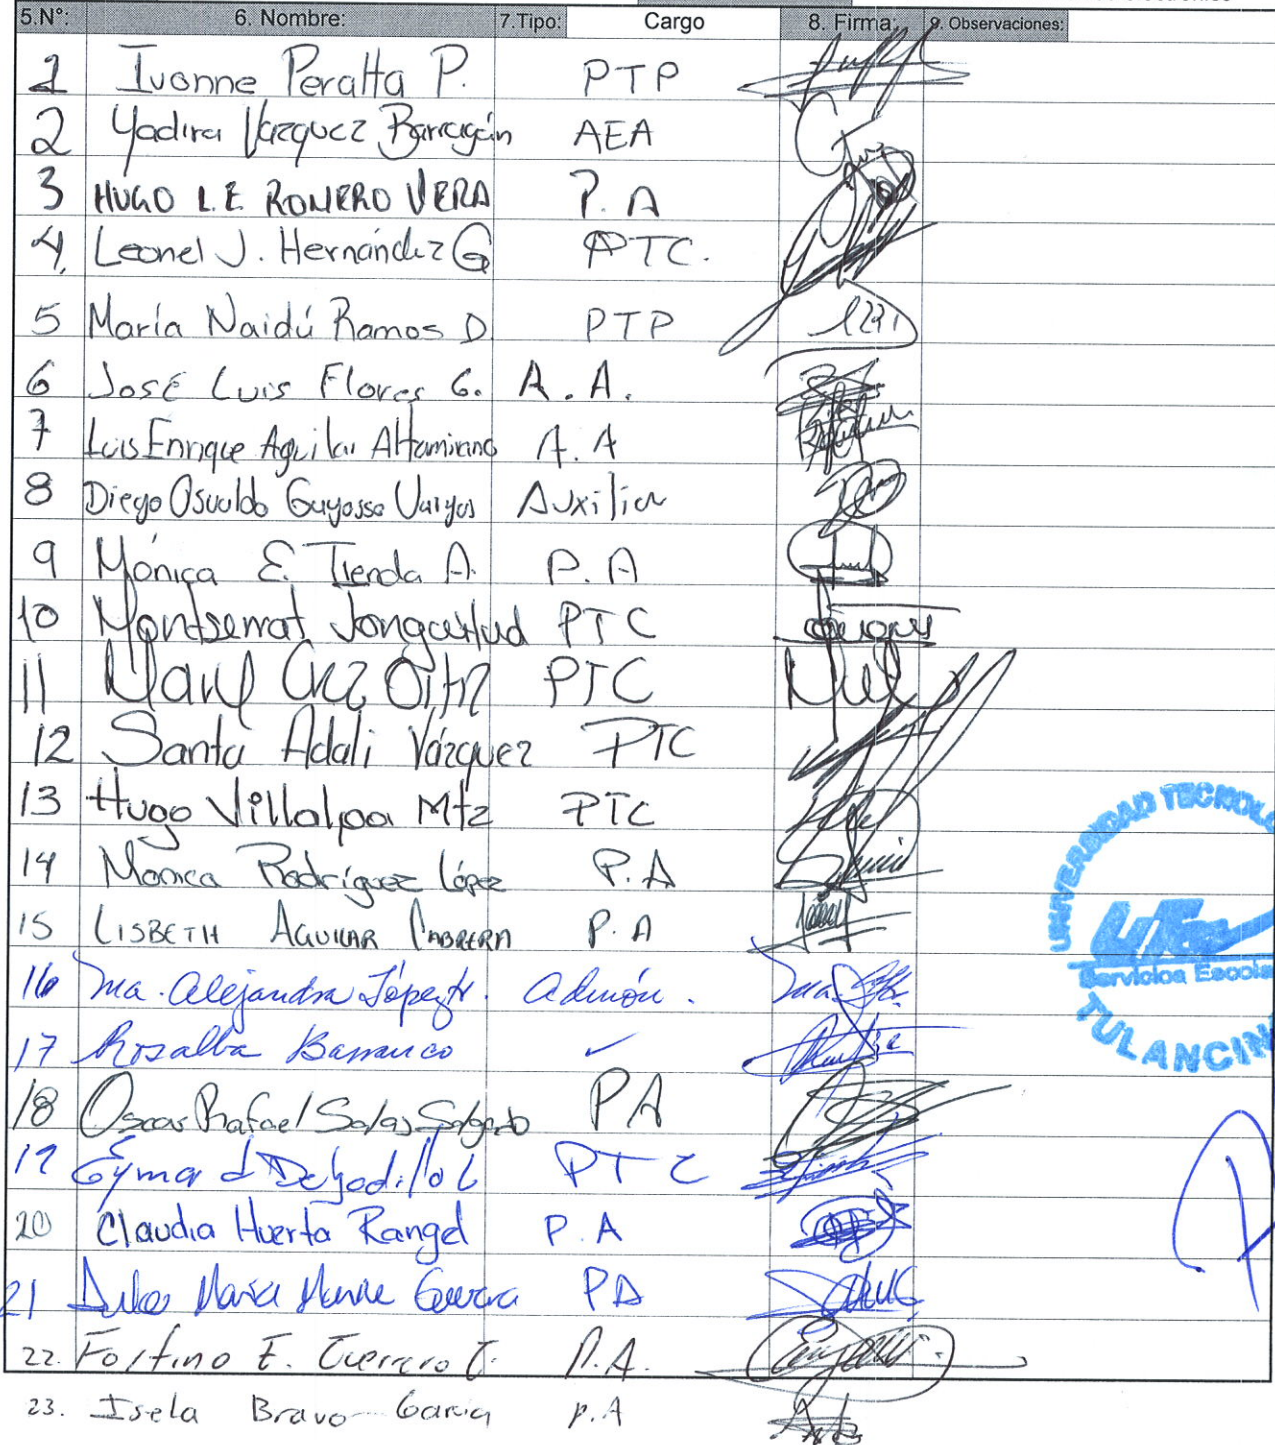 5.N°: 6. Nombre: 7.Tipo: Cargo 8. Firma: 9. Observaciones:
1 Ivonne Peralta P. PTP
2 Yadira Vázquez Barragán AEA
3 HUGO L.E. ROMERO VERA P.A
4. Leonel J. Hernández G PTC.
5 María Naidú Ramos D. PTP
6 José Luis Flores G. A.A.
7 Luis Enrique Aguilar Altamirano A.A
8 Diego Osvaldo Guyosso Vargas Auxiliar
9 Mónica E. Tienda A. P.A
10 Montserrat Jonguitud PTC
11 Cruz PTC
12 Santa Adali Vázquez PTC
13 Hugo Villalpa Mtz PTC
14 Monica Rodríguez López P.A
15 LISBETH AGUILAR CABRERA P.A
16 Ma. Alejandra López Admón.
17 Rosalba Barranco ✓
18 Oscar Rafael Salas Salgado PA
19 Eymard Delgadillo L PTC
20 Claudia Huerta Rangel P.A
21 María PA
22. Fortino E. Guerrero P.A.
23. Isela Bravo Garcia P.A
UNIVERSIDAD TECNOLO
UTec
Servicios Escola
TULANCIN